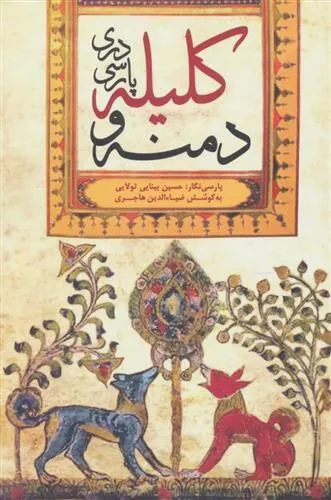 کلیله
و دمنه
پارسی دری
پارسی‌نگار: حسین بینایی تولایی
به کوشش ضیاءالدین هاجری